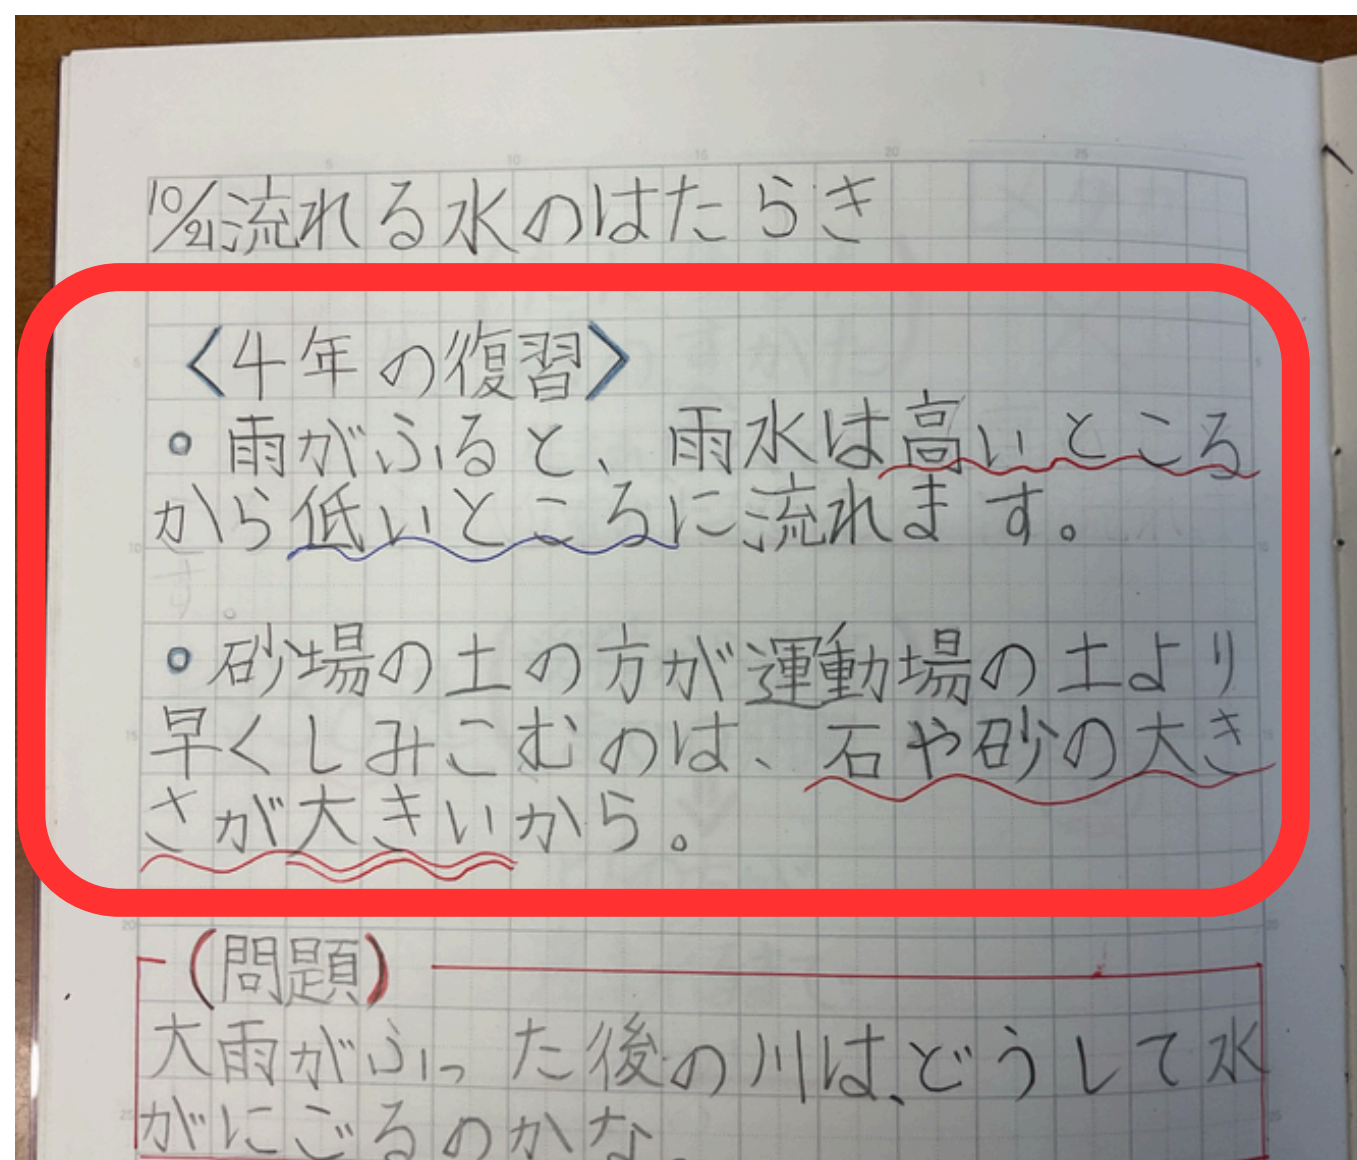 10/21 流れる水のはたらき
〈4年の復習〉
・雨がふると、雨水は高いところ
から低いところに流れます。
・砂場の土の方が運動場の土より
早くしみこむのは、石や砂の大き
さが大きいから。
(問題)
大雨がふった後の川は、どうして水
がにごるのかな。